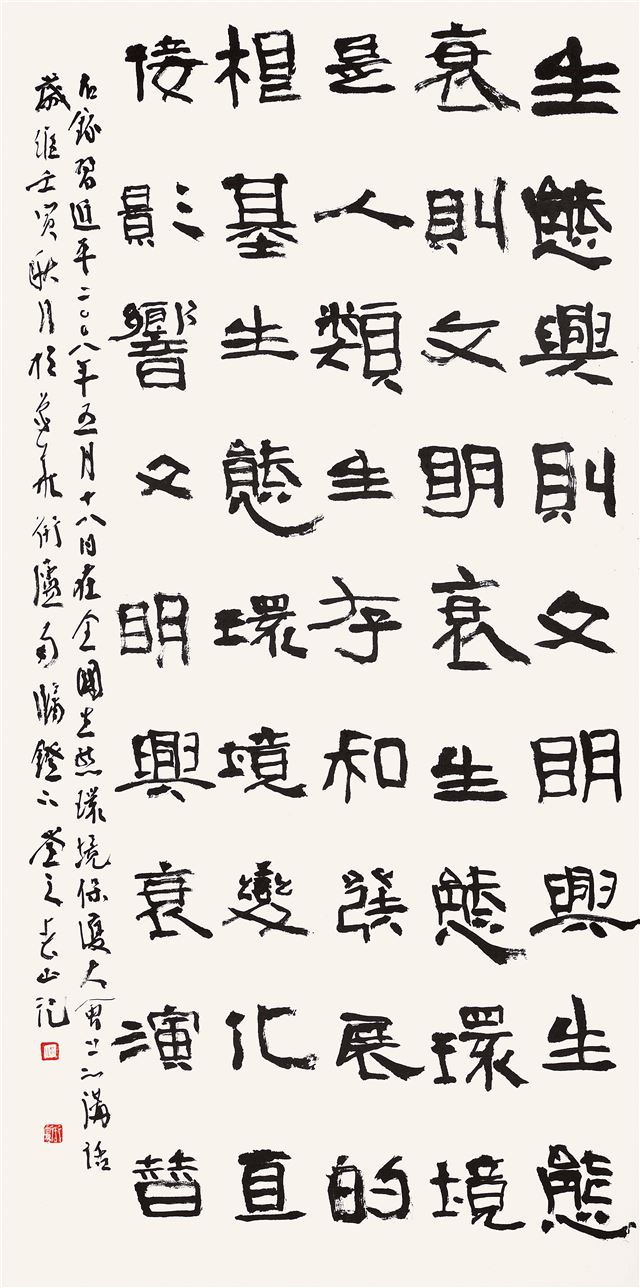 生態興則文明興生態
衰則文明衰生態環境
是人類生存和發展的
相基生態環境變化直
接影響文明興衰演替
右錄習近平二〇〇八年五月十八日在全國生態環境保護大會上的講話
歲維壬寅秋月於術廬南牖鐙下之山記